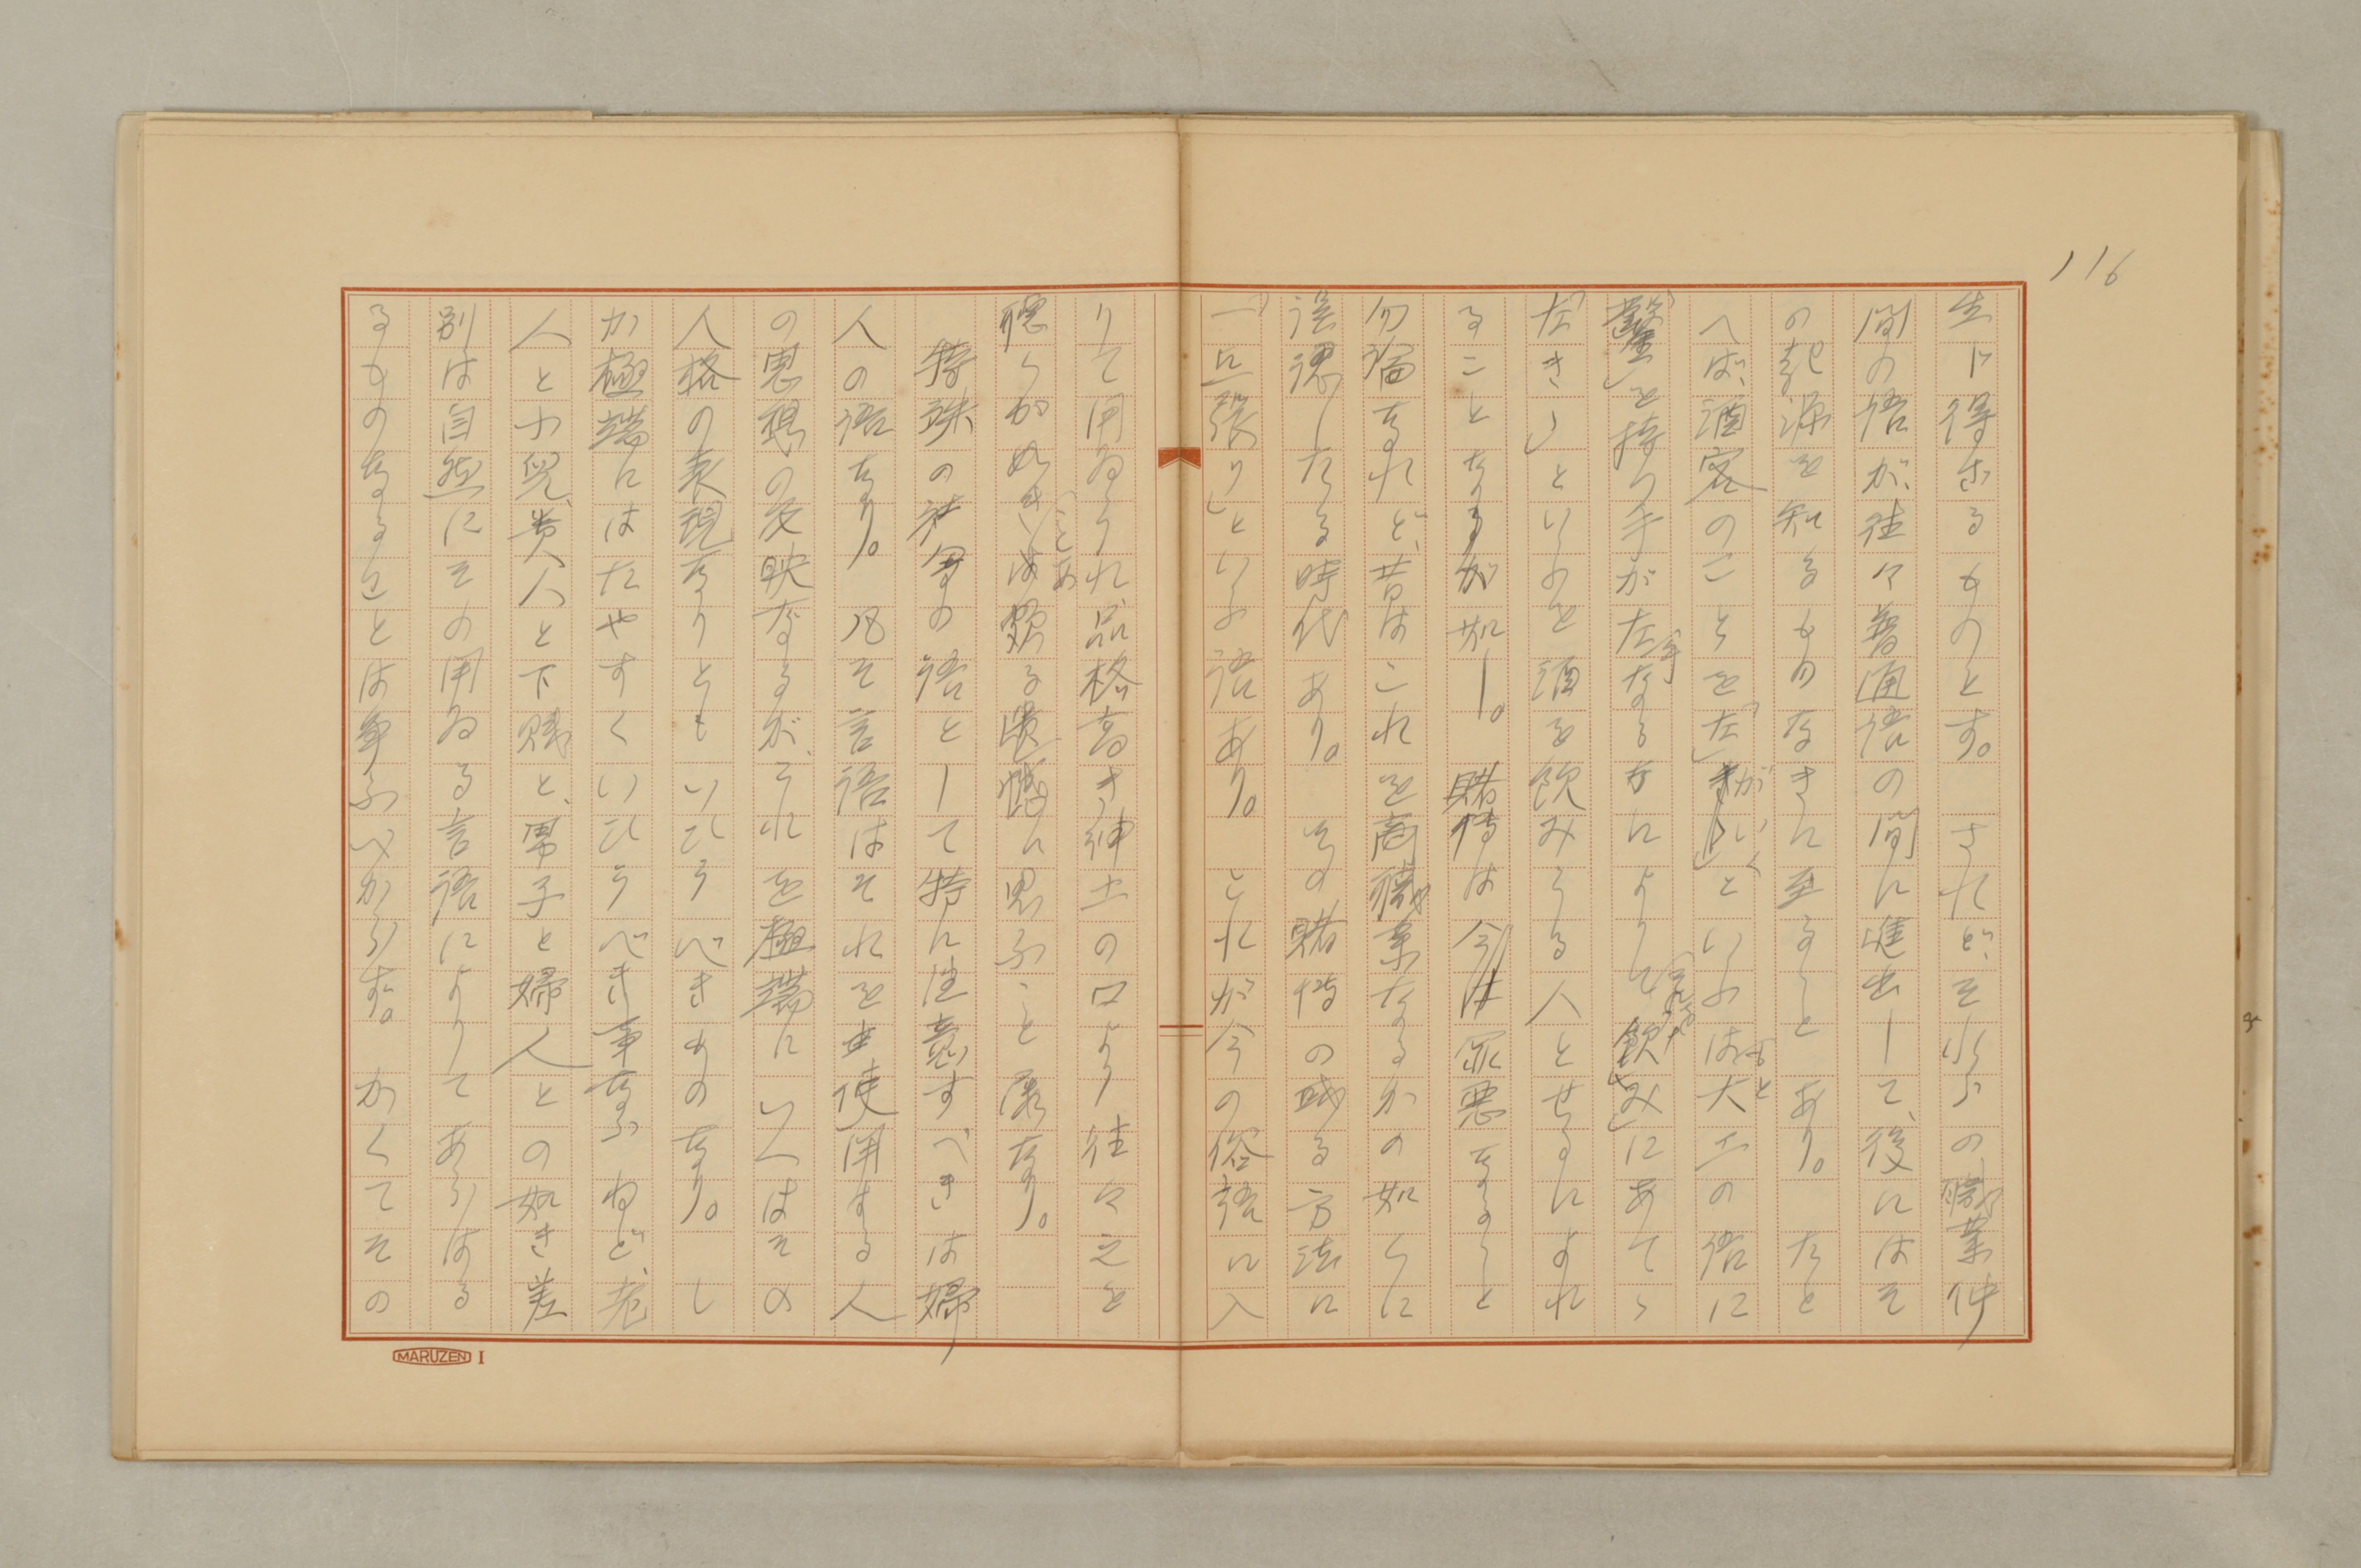 116
生ト得ざるものとす。されど、それらの職業仲
間の語が、往々普通語の間に進出して、後にはそ
の起源を知るものなきに至ること あり。 たと
へば、酒客のことを「左」がいくといふはもと大工の語に
「鑿」を持つ手が左手なるなによりて「飲み」にあてゝ
左きゝ」といふを酒を飲みうる人とせるによれ
ることなるが如し。賭博は今は罪悪なること
勿論なれど、昔はこれを商職業なるかの如くに
誤認したる時代あり。その賭博の或る方法に
「一点張り」といふ語あり。これが今の俗語に入
りて用ゐられ、品格高き紳士の口より往々之を
聴くが如きことあるは頗る遺憾に思ふこと屡なり。
特殊の社会の語として特に注意すべきは婦
人の語なり。凡そ言語はそれを使用する人
の思想の反映なるが、それを極端にいへばその
人格の表現なりともいひうべきものなり。し
か極端にはたやすくいひうべき事ならねど、老
人と小児、貴人と下賤と、男子と婦人との如き差
別は自然にその用ゐる言語によりてあらはる
るものなることは争ふべからず。かくてその
MARUZEN I